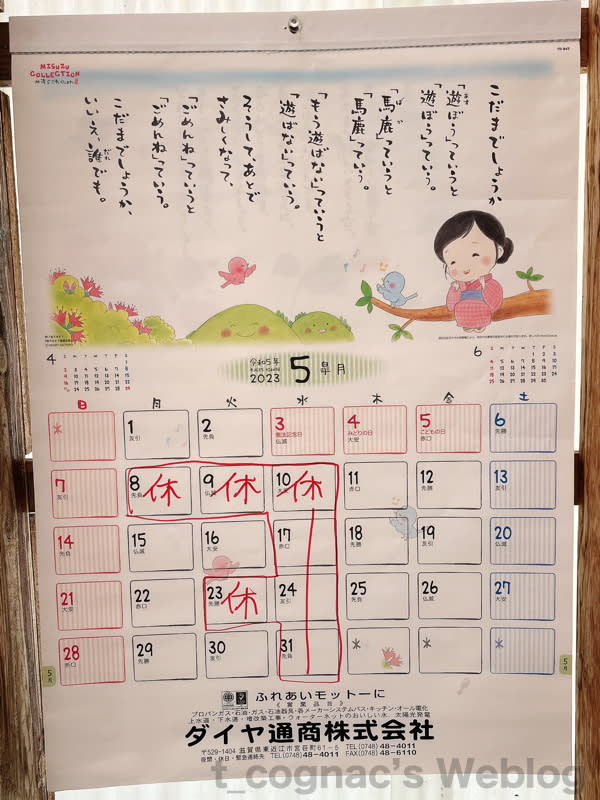 MISUZU COLLECTION
TD-842
こだまでしょうか
「遊ぼう」っていうと
「遊ぼう」っていう。
「馬鹿」っていうと
「馬鹿」っていう。
「もう遊ばない」っていうと
「遊ばない」っていう。
そうして、あとで
さみしくなって、
「ごめんね」っていうと
「ごめんね」っていう。
こだまでしょうか、
いいえ、誰でも。
4
令和5年
2023
5 皐月
6
日 月 火 水 木 金 土
* 1 友引 2 先負 3 憲法記念日 仏滅 4 みどりの日 大安 5 こどもの日 赤口 6 先勝
7 友引 8 先負 休 9 仏滅 休 10 大安 休 11 赤口 12 先勝 13 友引
14 先負 15 仏滅 16 大安 17 赤口 18 先勝 19 友引 20 仏滅
21 大安 22 赤口 23 先勝 休 24 友引 25 先負 26 仏滅 27 大安
28 赤口 29 先勝 30 友引 31 先負 * * *
5月 5月
ふれあいモットーに
《営業品目》
プロパンガス・石油・ガス・石油器具・各メーカーシステムバス・キッチン・オール電化
上水道・下水道・増改築工事・ウォーターネットのおいしい水、太陽光発電
ダイヤ通商株式会社
〒529-1404 滋賀県東近江市宮荘町61-5 TEL(0748)48-4011
夜間・休日・緊急連絡先 TEL(0748)48-4011 FAX(0748)48-6110
t_cognac's Weblog